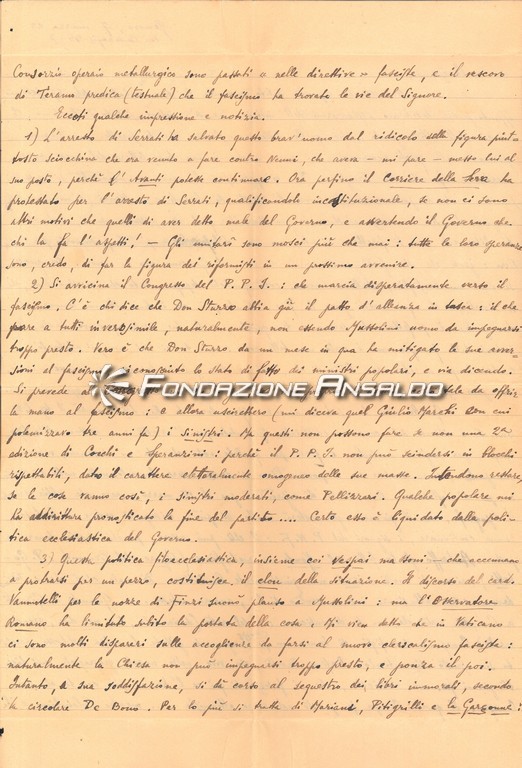 Consorzio operaio metallurgico sono passati « nelle direttive » fasciste, e il vescovo
di Teramo predica (testuale) che il fascismo ha trovato le vie del Signore.
Eccoti qualche impressione e notizia.
1) L'arresto di Serrati ha salvato questo brav'uomo dal ridicolo della figura piut
tosto sciocchina che era venuto a fare contro Nenni, che aveva — mi pare — messo lui al
suo posto, perchè l'Avanti potesse continuare. Ora perfino il Corriere della Sera ha
protestato per l'arresto di Serrati, qualificandolo incostituzionale, se non ci sono
altri motivi che quelli di aver detto male del Governo, e avvertendo il Governo che
chi la fa l'aspetti! — Gli unitari sono mosci più che mai: tutte le loro speranze
sono, credo, di far la figura dei riformisti in un prossimo avvenire.
2) Si avvicina il Congresso del P. P. I.: che marcia disperatamente verso il
fascismo. C'è chi dice che Don Sturzo abbia già il patto d'alleanza in tasca: il che
pare a tutti inverosimile, naturalmente, non essendo Mussolini uomo da impegnarsi
troppo presto. Vero è che Don Sturzo da un mese in qua ha mitigato le sue avver-
sioni al fascismo, riconosciuto lo stato di fatto dei ministri popolari, e via dicendo.
Si prevede al da offrir
la mano al fascismo: e allora uscirebbero (mi diceva quel Giulio Marchi con cui
polemizzavo tre anni fa) i sinistri. Ma questi non possono fare se non una 2a
edizione di Cocchi e Speranzini: perchè il P. P. I. non può scindersi in blocchi
rispettabili, dato il carattere elettoralmente omogeneo delle sue masse. Intendono restare,
se le cose vanno così, i sinistri moderati, come Pellizzari. Qualche popolare mi
ha addirittura pronosticato la fine del partito.... Certo esso è liquidato dalla poli-
tica ecclesiastica del Governo.
3) Questa politica filoecclesiastica, insieme coi vespai massoni — che accennano
a protrarsi per un pezzo, costituisce il clou della situazione. Il discorso del card.
Vannutelli per le nozze di Finzi suonò plauso a Mussolini: ma l'Osservatore
Romano ha limitato subito la portata della cosa. Mi vien detto che in Vaticano
ci sono molti dispareri sulle accoglienze da farsi al nuovo clericalismo fascista:
naturalmente la Chiesa non può impegnarsi troppo presto, e ponza il poi.
Intanto, a sua soddisfazione, si dà corso al sequestro dei libri immorali, secondo
la circolare De Bono. Per lo più si tratta di Mariani, Pitigrilli e la Garçonne:
Fondazione Ansaldo